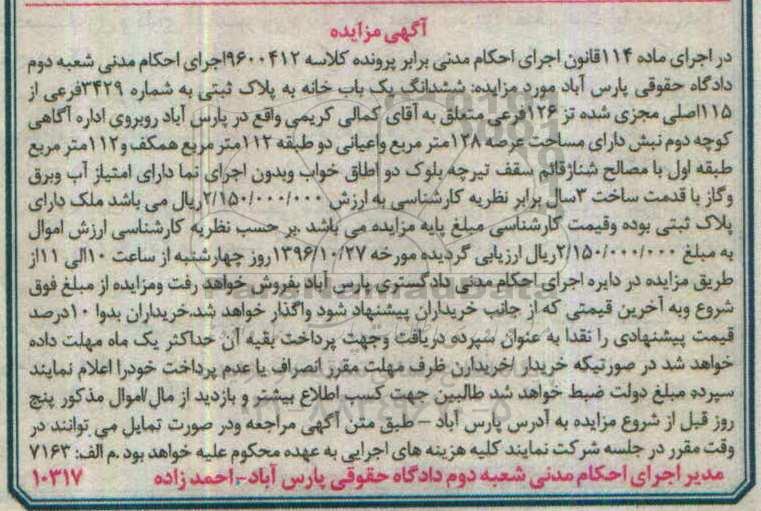 آگهی مزایده
در اجرای ماده ۱۱۴قانون اجرای احکام مدنی برابر پرونده کلاسه ۹۶۰۰۴۱۲اجرای احکام مدنی شعبه دوم
دادگاه حقوقی پارس آباد مورد مزایده: ششدانگ یک باب خانه به پلاک ثبتی به شماره ۳۴۲۹فرعی از
۱۱۵اصلی مجزی شده تز ۱۲۶فرعی متعلق به آقای کمالی کریمی واقع در پارس آباد روبروی اداره آگاهی
کوچه دوم نبش دارای مساحت عرصه ۱۲۸متر مربع واعیانی دو طبقه ۱۱۲متر مربع همکف و۱۱۲متر مربع
طبقه اول با مصالح شناژقائم سقف تیرچه بلوک دو اطاق خواب وبدون اجرای نما دارای امتیاز آب وبرق
وگاز با قدمت ساخت ۳سال برابر نظریه کارشناسی به ارزش ۲/۱۵۰/۰۰۰/۰۰۰ریال می باشد ملک دارای
پلاک ثبتی بوده وقیمت کارشناسی مبلغ پایه مزایده می باشد .بر حسب نظریه کارشناسی ارزش اموال
به مبلغ ۲/۱۵۰/۰۰۰/۰۰۰ریال ارزیابی گردیده مورخه ۱۳۹۶/۱۰/۲۷روز چهارشنبه از ساعت ۱۰الی ۱۱از
طریق مزایده در دایره اجرای احکام مدنی دادگستری پارس آباد بفروش خواهد رفت ومزایده از مبلغ فوق
شروع وبه آخرین قیمتی که از جانب خریداران پیشنهاد شود واگذار خواهد شد.خریداران بدوا ۱۰درصد
قیمت پیشنهادی را نقدا به عنوان سپرده دریافت وجهت پرداخت بقیه آن حداکثر یک ماه مهلت داده
خواهد شد در صورتیکه خریدار /خریدارن ظرف مهلت مقرر انصراف یا عدم پرداخت خودرا اعلام نمایند
سپرده مبلغ دولت ضبط خواهد شد طالبین جهت کسب اطلاع بیشتر و بازدید از مال/اموال مذکور پنج
روز قبل از شروع مزایده به آدرس پارس آباد – طبق متن آگهی مراجعه ودر صورت تمایل می توانند در
وقت مقرر در جلسه شرکت نمایند کلیه هزینه های اجرایی به عهده محکوم علیه خواهد بود .م الف: ۷۱۶۳
مدیر اجرای احکام مدنی شعبه دوم دادگاه حقوقی پارس آباد- احمد زاده ۱۰۳۱۷